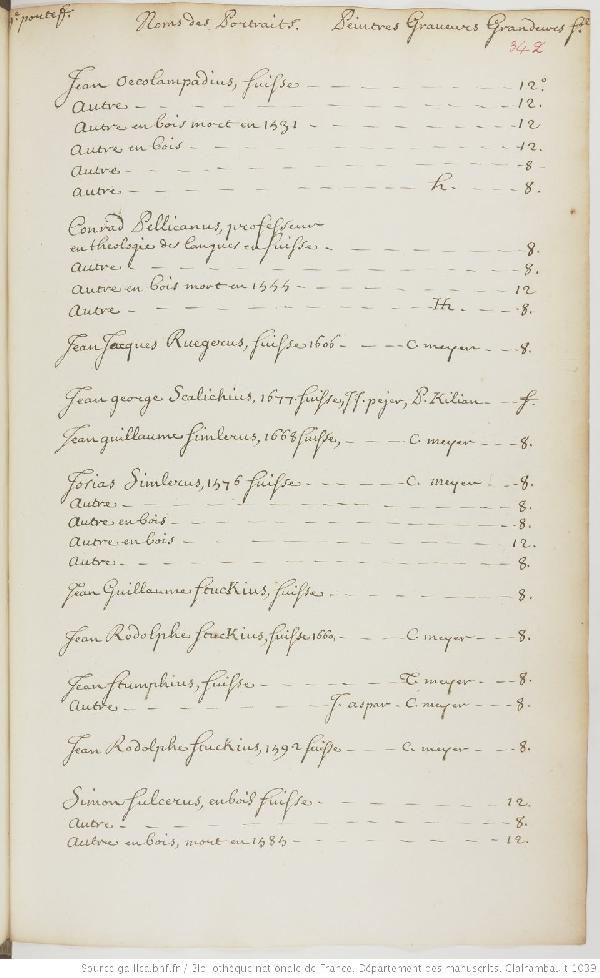 Noms des Portraits. Peintres Graveurs Grandeurs
342
Jean Oecolampadius, suisse 12.°
Autre 12.
Autre en bois mort en 1531 12
Autre en bois 12.
Autre 8
Autre h. 8.
Conrad Pellicanus, professeur
en theologie des langues en suisse 8.
Autre 8.
Autre en bois mort en 1555 12
Autre H. 8.
Jean Jacques Ruegerus, suisse 1606 C. meyer 8.
Jean george Scalichius, 1677 suisse, JJ. pejer, P. Kilian f.
Jean guillaume simlerus, 1668 suisse, C. meyer 8.
Josias Simlerus, 1576 suisse C. meyer 8.
Autre 8.
Autre en bois 8.
Autre en bois 12.
Autre 8.
Jean Guillaume stuckius, suisse 8.
Jean Rodolphe stuckius, suisse 1660 C. meyer 8.
Jean stumphius, suisse T. meyer 8.
Autre J. aspar C. meyer 8.
Jean Rodolphe stuckius, 1592 suisse C. meyer 8.
Simon sulcerus, en bois suisse 12.
Autre 8.
Autre en bois, mort en 1585 12.
Source gallica.bnf.fr / Bibliothèque nationale de France. Département des manuscrits. Clairambault 1039